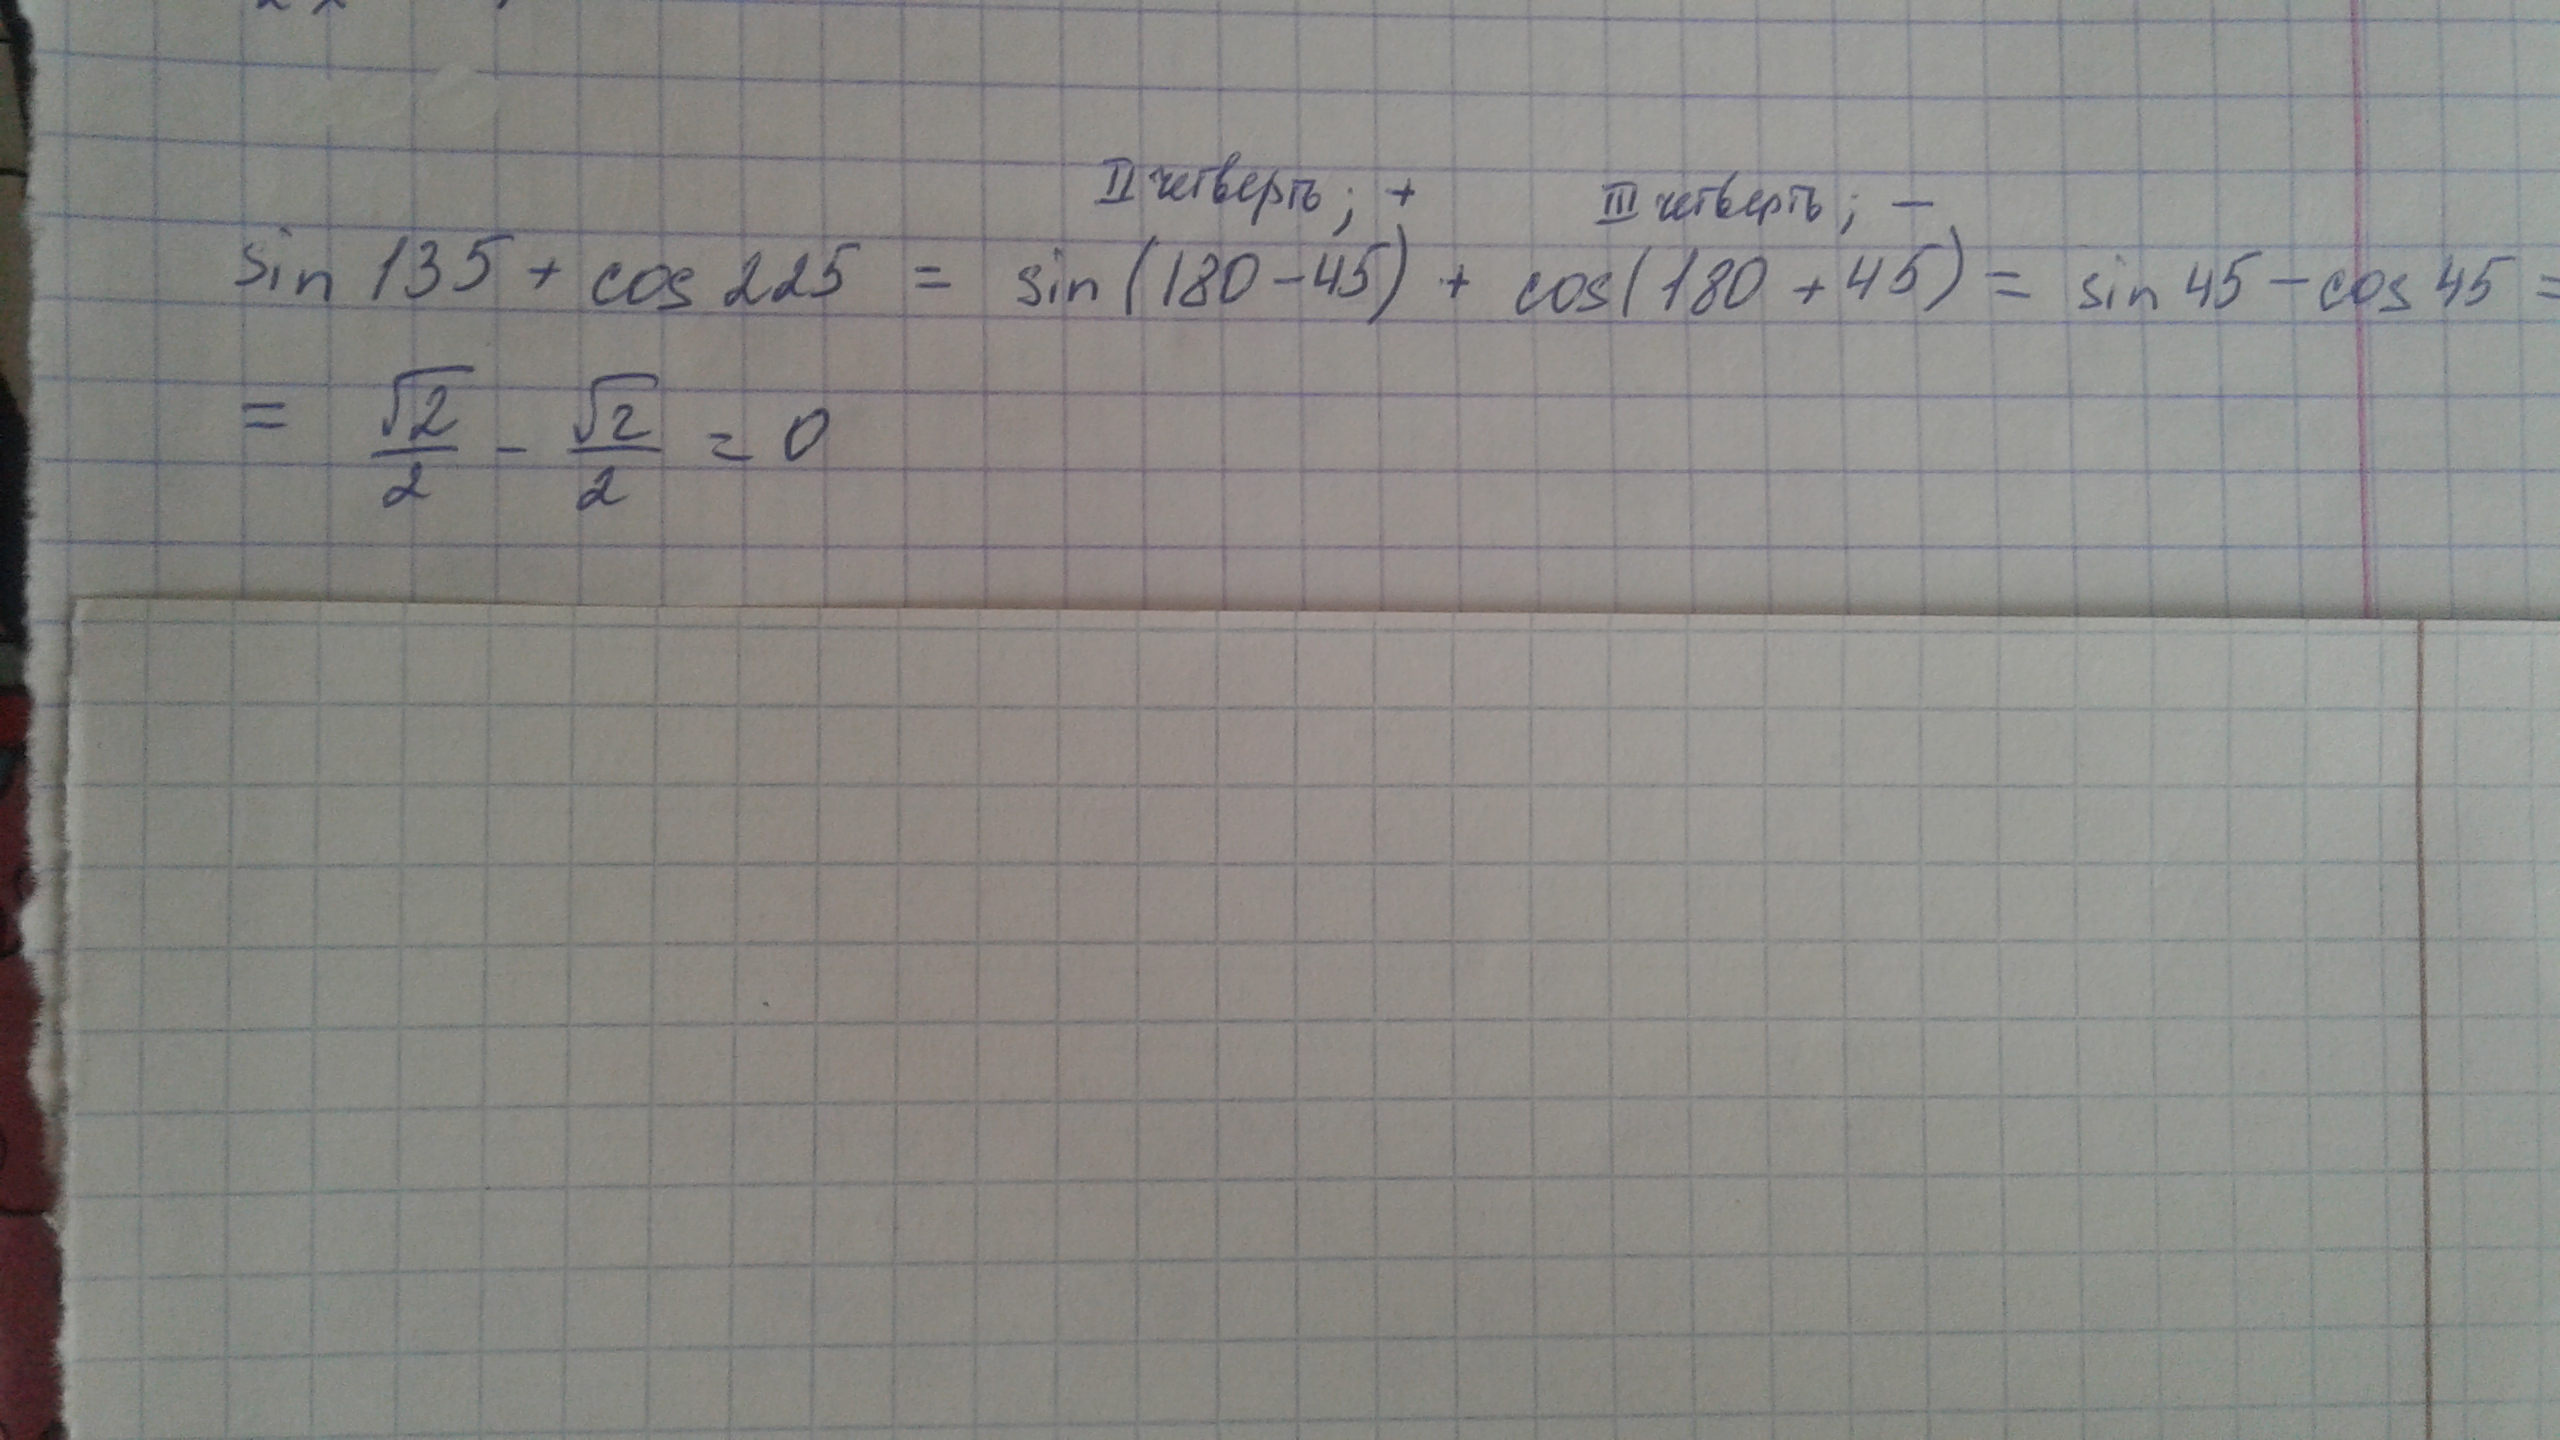 II четверть; + III четверть; −
sin 135 + cos 225 = sin(180 − 45) + cos(180 + 45) = sin 45 − cos 45 =
= √2/2 − √2/2 = 0